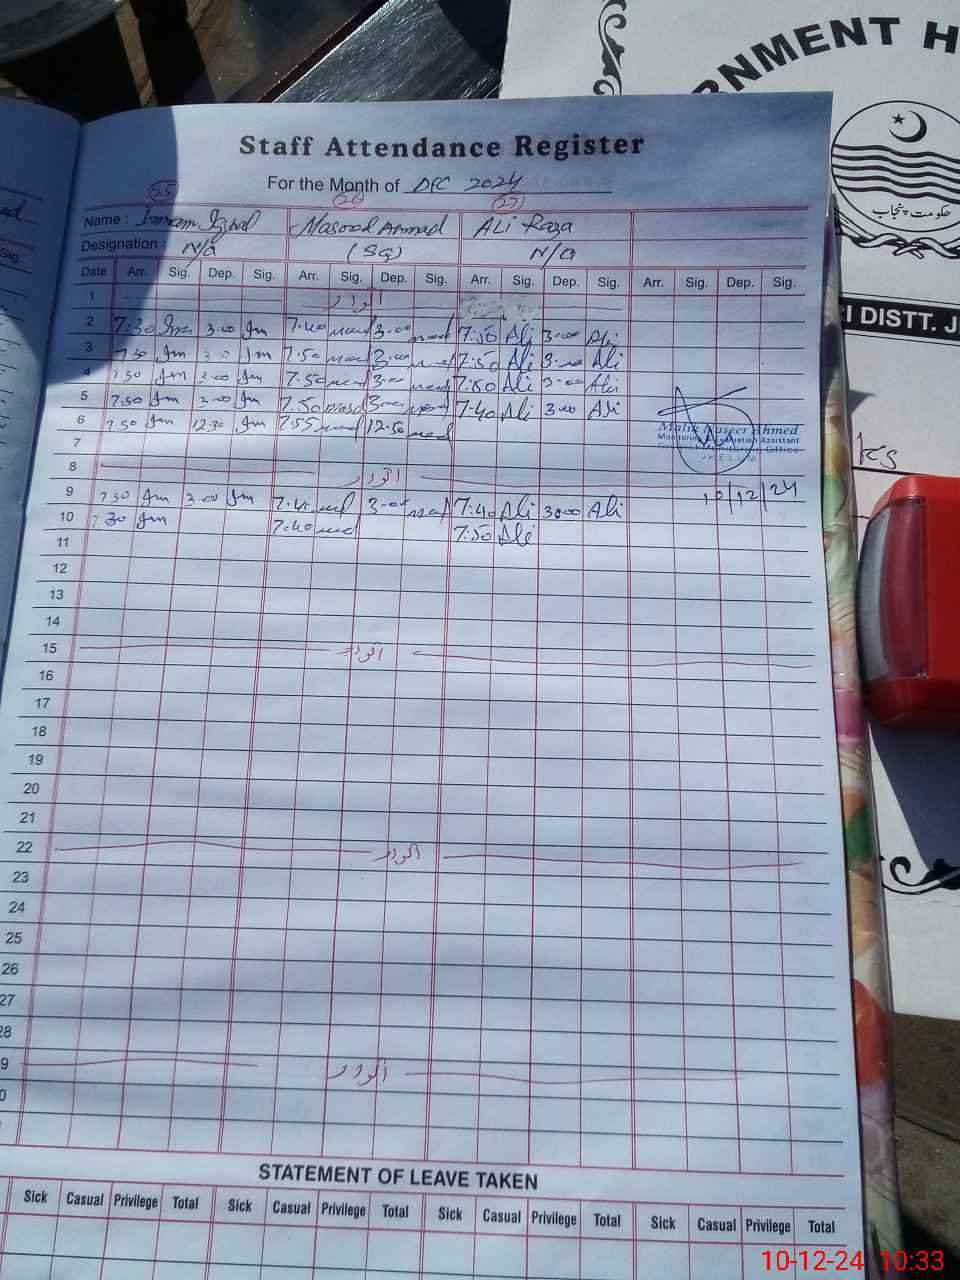 RNMENT H
حکومت پنجاب
RI DISTT. J
ks
Staff Attendance Register
For the Month of DEC 2024
25 26 27
Name : Imram Iqbal Masood Ahmad ALi Raza
Designation : N/Q (SG) N/Q
Date Arr. Sig. Dep. Sig. Arr. Sig. Dep. Sig. Arr. Sig. Dep. Sig. Arr. Sig. Dep. Sig.
1 اتوار
2 7:30 3.00 7:40 3.00 7:50 Ali 3:00 Ali
3 7:30 3.00 7:50 3.00 7:50 Ali 3:00 Ali
4 7:30 3.00 7:50 3.00 7:50 Ali 3:00 Ali
5 7:30 3.00 7:50 3.00 7:40 Ali 3:00 Ali
6 7:30 12:30 7:55 12:50
7
Malik Naseer Ahmed
Monitoring & Evaluation Assistant
District Monitoring Office
JHELUM
8 اتوار
10/12/24
9 7:30 3.00 7:40 3.00 7:40 Ali 3:00 Ali
10 7:30 7:40 7:50 Ali
11
12
13
14
15 اتوار
16
17
18
19
20
21
22 اتوار
23
24
25
26
27
28
9 اتوار
0
STATEMENT OF LEAVE TAKEN
Sick Casual Privilege Total Sick Casual Privilege Total Sick Casual Privilege Total Sick Casual Privilege Total
10-12-24 10:33